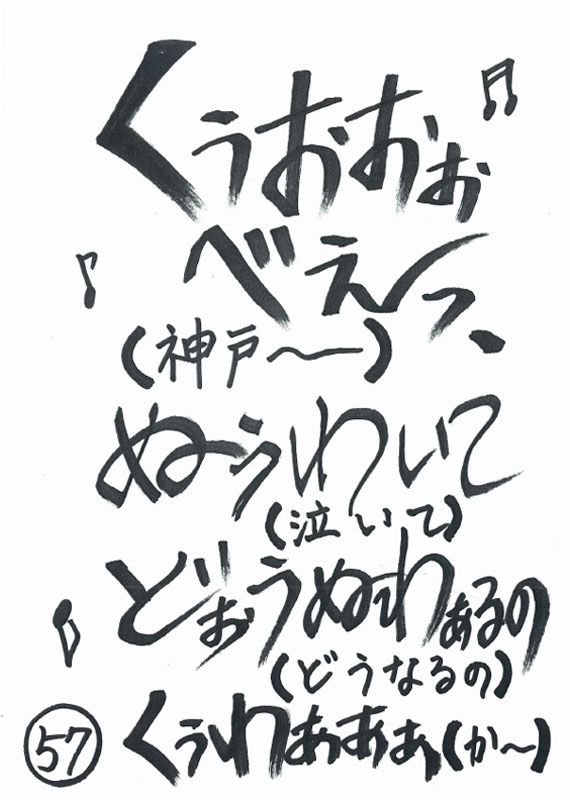 くぅおおぉ
べえっ、
(神戸〜)
ぬぅわいて
(泣いて)
どぉうぬぅわぁるの
(どうなるの)
くぅわぁぁぁ(か〜)
57